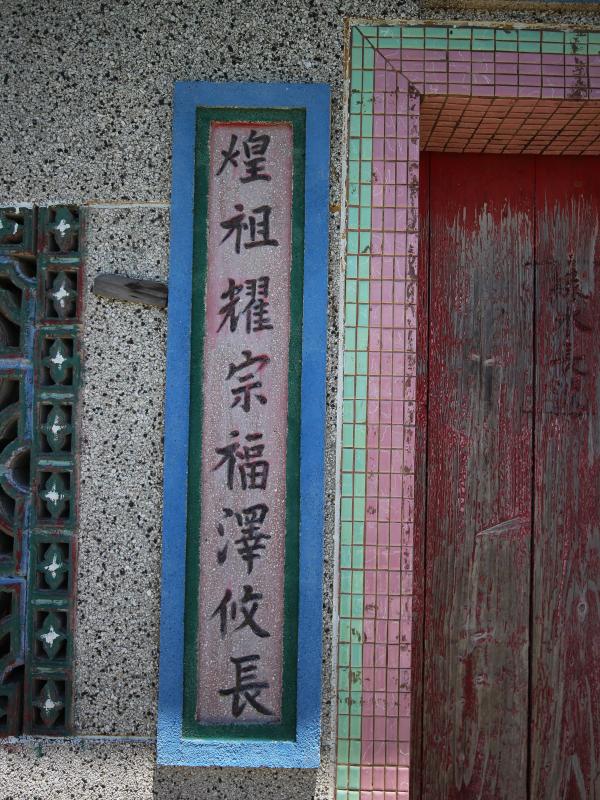 煌祖耀宗福澤攸長